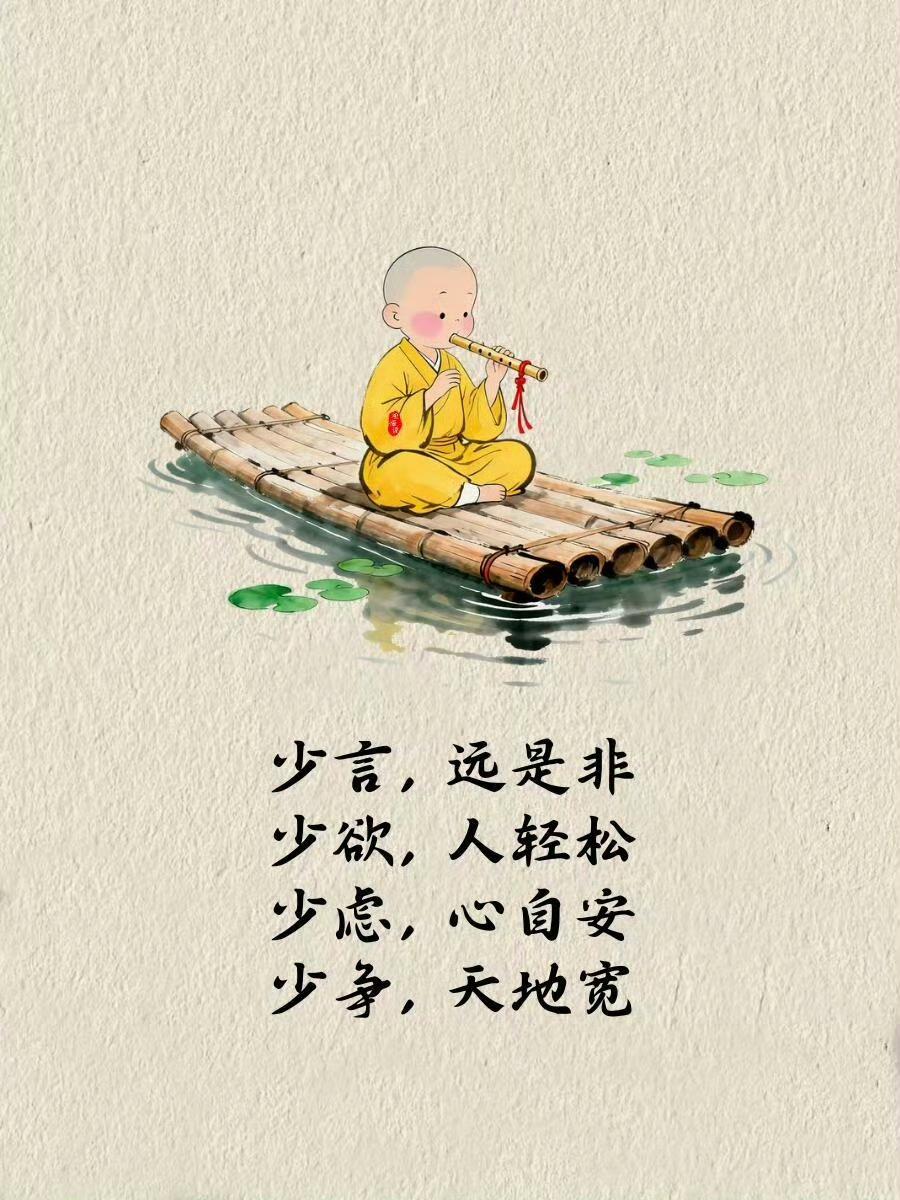 少言，远是非
少欲，人轻松
少虑，心自安
少争，天地宽